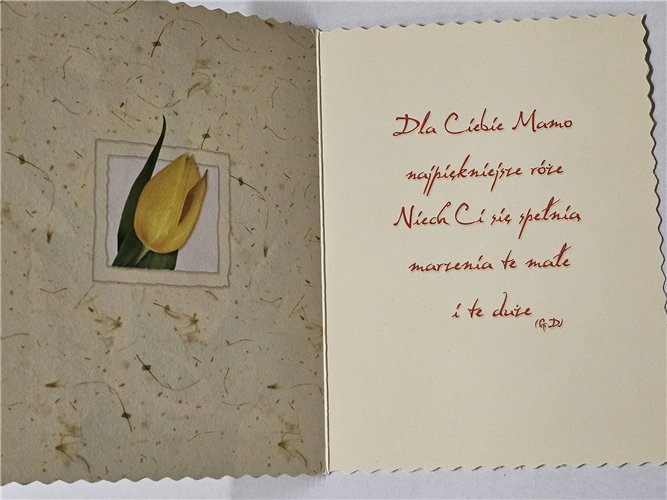 Dla Ciebie Mamo
najpiękniejsze róże
Niech Ci się spełnią
marzenia te małe
i te duże
(G.D.)